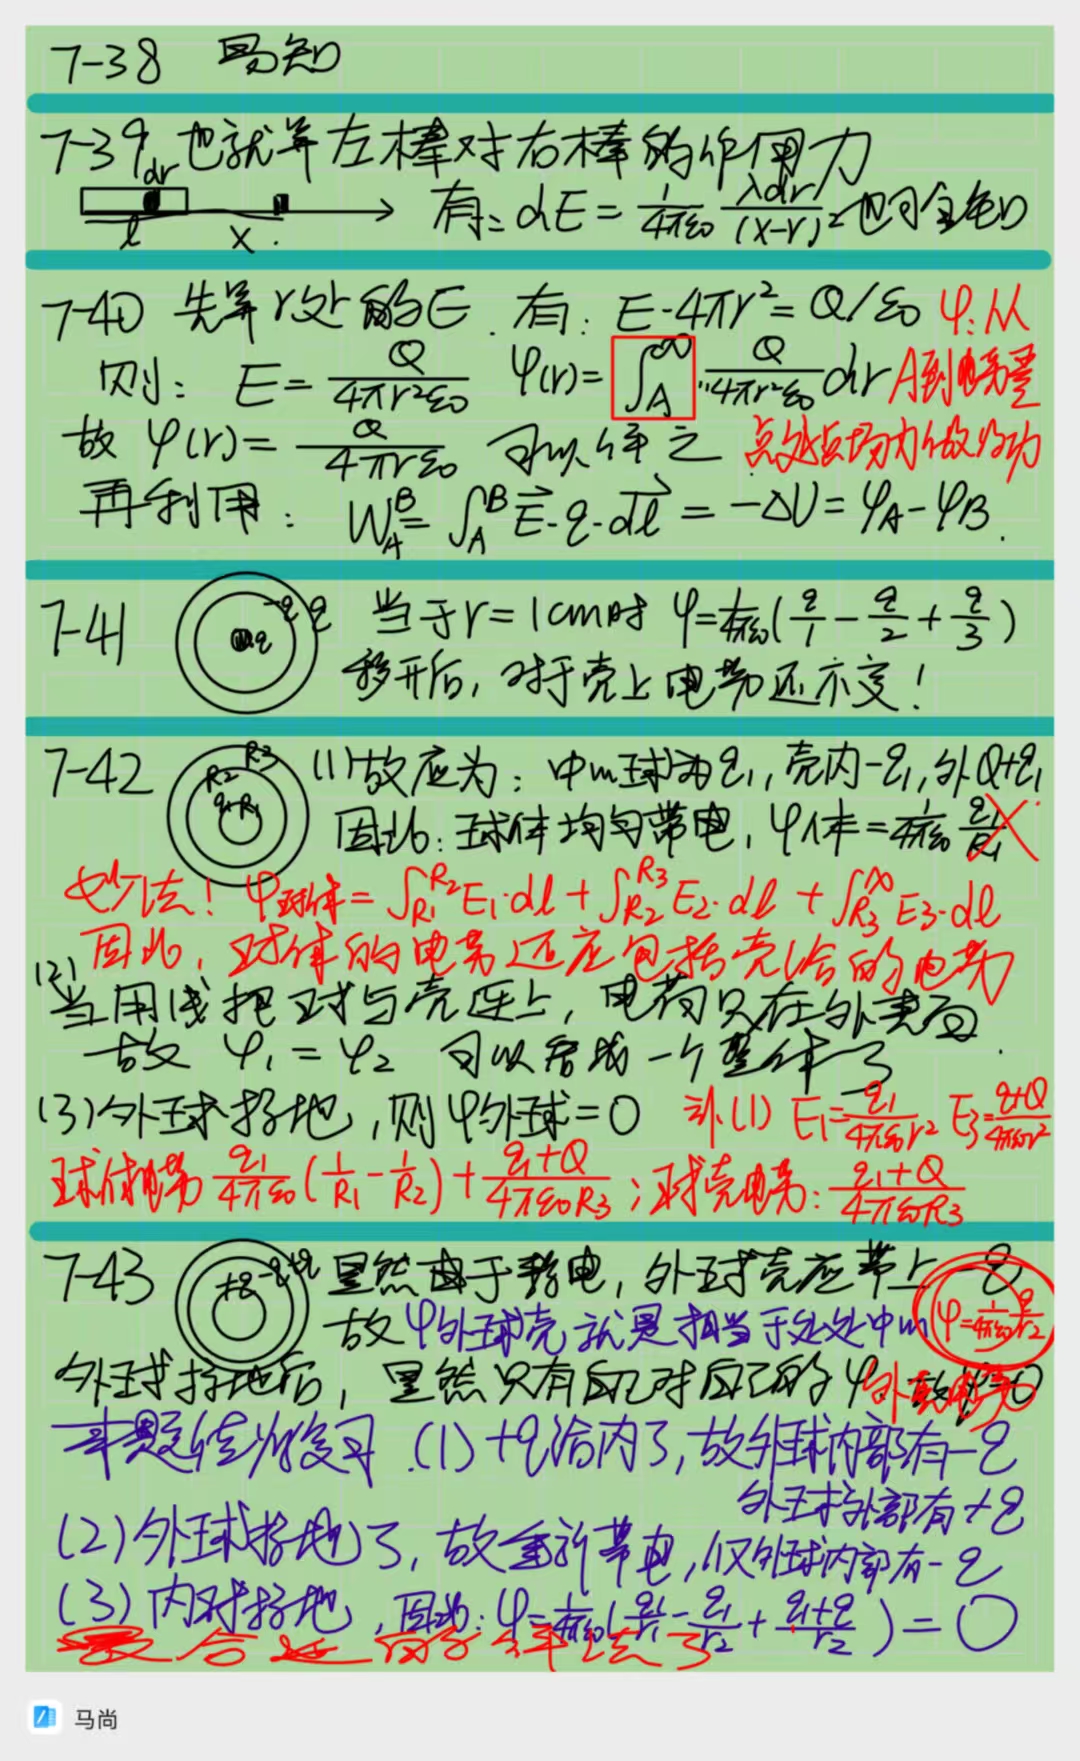 7-38 易知
7-39 也就算左棒对右棒的作用力
dr
l x
有: dE = 1/4πε0 λdr/(x-r)² 也可全知
7-40 先算r处的E. 有: E·4πr² = Q/ε0 φ:从
则: E = Q/4πr²ε0 φ(r) = ∫A^∞ Q/4πr²ε0 dr A到电势零
故 φ(r) = Q/4πrε0 可以得之 点处电场力做的功
再利用: W_A^B = ∫A^B E·q·dl = -ΔU = φA - φB.
7-41 q -q q 当于r=1cm时 φ = 1/4πε0 (q/1 - q/2 + q/3)
移开后, 对于壳上电势还不变!
7-42 R2 R3 q1 R1 (1)故应为: 中心球为q1, 壳内-q1, 外Q+q1
因此: 球体均匀带电, φ体 = 1/4πε0 q1/R1 ×
妙法! φ球体 = ∫R1^R2 E1·dl + ∫R2^R3 E2·dl + ∫R3^∞ E3·dl
因此, 球体的电势还应包括壳给的电势
(2) 当用线把球与壳连上, 电荷只在外表面
故 φ1 = φ2 可以看成一个整体了.
(3)外球接地, 则φ外球 = 0 补(1) E1 = q1/4πε0r² E3 = q+Q/4πε0r²
球体电势 q1/4πε0 (1/R1 - 1/R2) + q1+Q/4πε0R3 ; 球壳电势: q1+Q/4πε0R3
7-43 +q -q +q 显然由于静电, 外球壳应带上 -q
故φ外球壳就是相当于处处中心 φ = 1/4πε0 q/r2
外球接地后, 显然只有自己对自己的φ
本题值得复习 .(1) +q给内了, 故外球内部有-q
外球外部有+q
(2)外球接地了, 故重新带电, 仅外球内部有-q
(3)内球接地, 因此: φ = 1/4πε0 (q1/r1 - q1/r2 + q1+q/r2) = 0
马尚